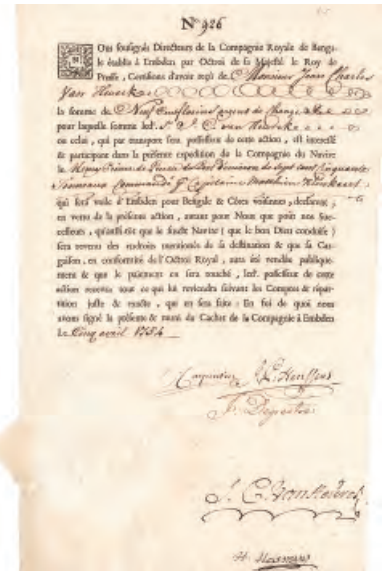 N° 926
Nous soussignés Directeurs de la Compagnie Royale de Benga-
le établie à Embden par Octroi de sa Majesté le Roy de
Prusse, Certifions d'avoir reçû de Monsieur Jean Charles
Van Heurck
la somme de Neuf Cent florins argent de Change
pour laquelle somme led. Sr. J. C. van Heurck
ou celui, qui par transport sera possesseur de cette action, est interessé
& participant dans la présente expedition de la Compagnie du Navire
le Prince de Prusse du Port de sept cent Cinquante
Tonneaux Commandé Capitaine
qui fera voile d'Embden pour Bengale & Côtes voisines, declarant,
en vertu de la présente action, autant pour Nous que pour nos Suc-
cesseurs, qu'aussi-tôt que le susdit Navire (que le bon Dieu conduise)
sera revenu des endroits mentionnés de sa destination & que sa Car-
gaison, en conformité de l'Octroi Royal, aura été vendue publique-
ment & que le paiement en sera touché, led. possesseur de cette
action recevra tout ce qui lui reviendra suivant les Comptes & répar-
tition juste & exacte, qui en sera faite: En foi de quoi nous
avons signé la présente & muni du Cachet de la Compagnie à Embden
Le Cinq avril 1754
Carpentier
F. Depestre
J. C. Van Heurck